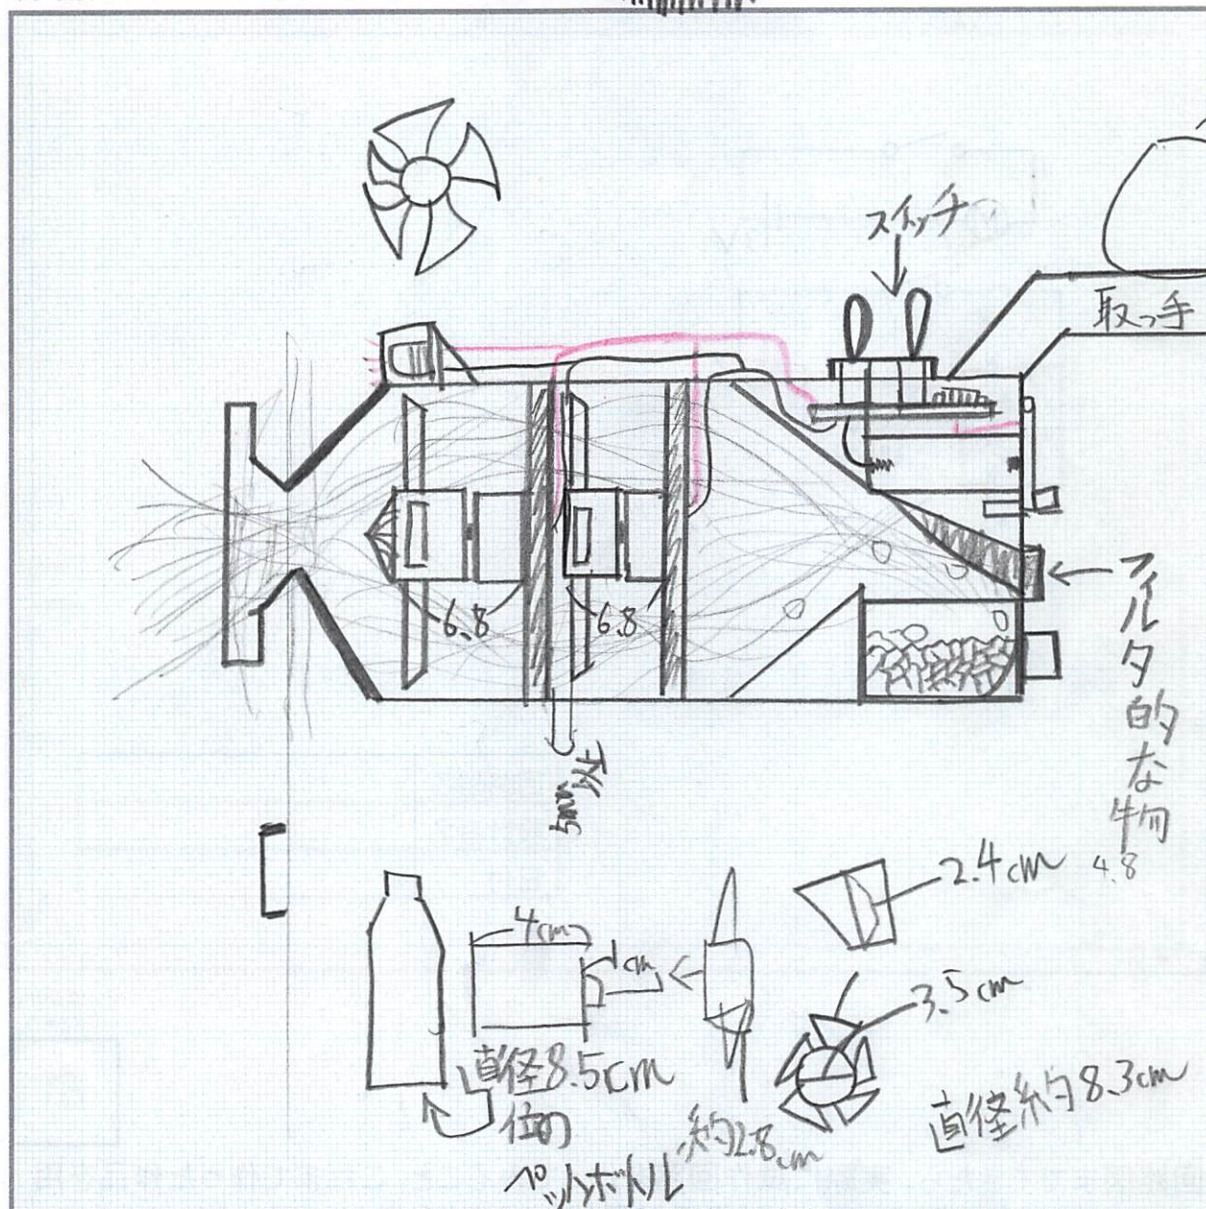 スイッチ
取っ手
6.8
6.8
フィルタ的な物
5mm以上
2.4cm
4.8
4cm
1cm
3.5cm
直径8.5cm
位の
ペットボトル
約2.8cm
直径約8.3cm